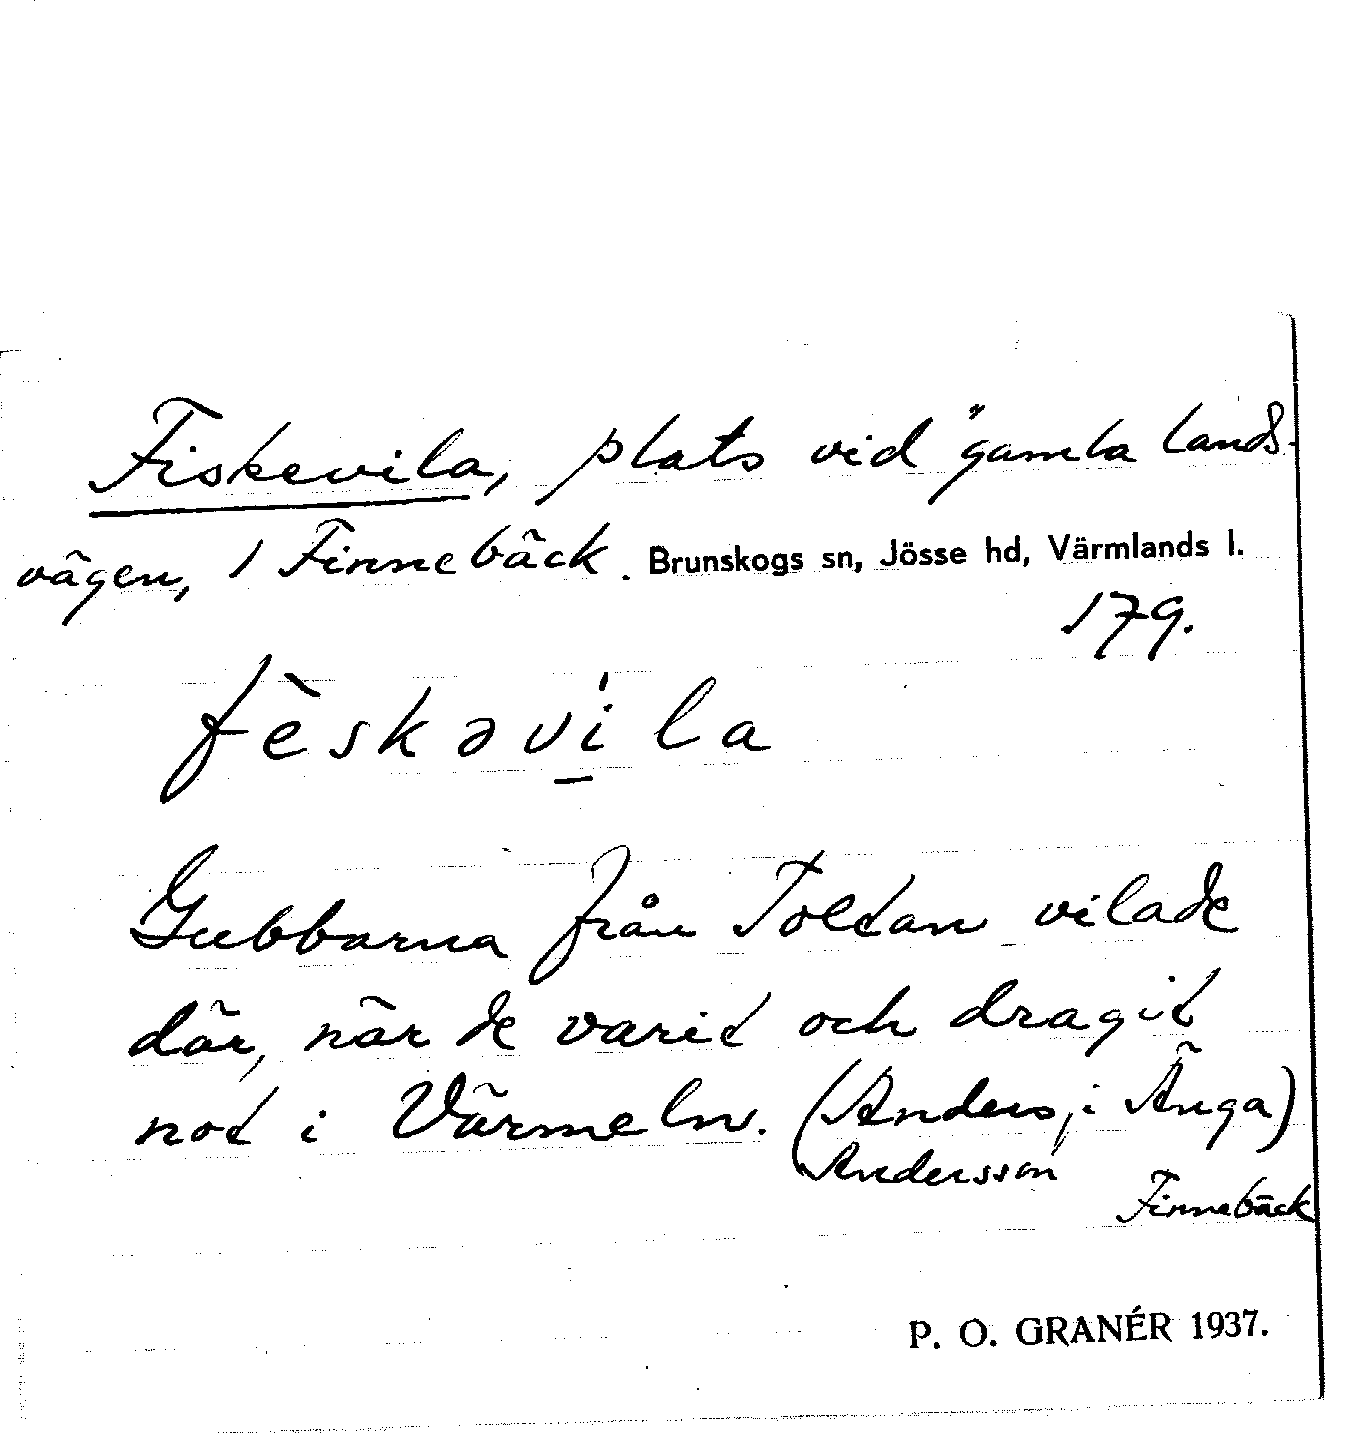 Fiskevila, plats vid "gamla lands-
vägen, i Finnebäck. Brunskogs sn, Jösse hd, Värmlands l.
179.
fèskəvi̱la
Gubbarna från Toltan vilade
där, när de varit och dragit
not i Värmeln. (Anders i Änga)
Andersson
Finnebäck
P. O. GRANÉR 1937.